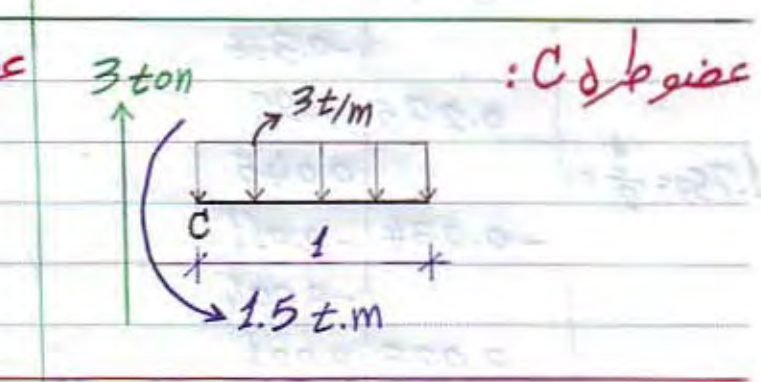 عضو طره C:
3 ton
3 t/m
C
1
1.5 t.m